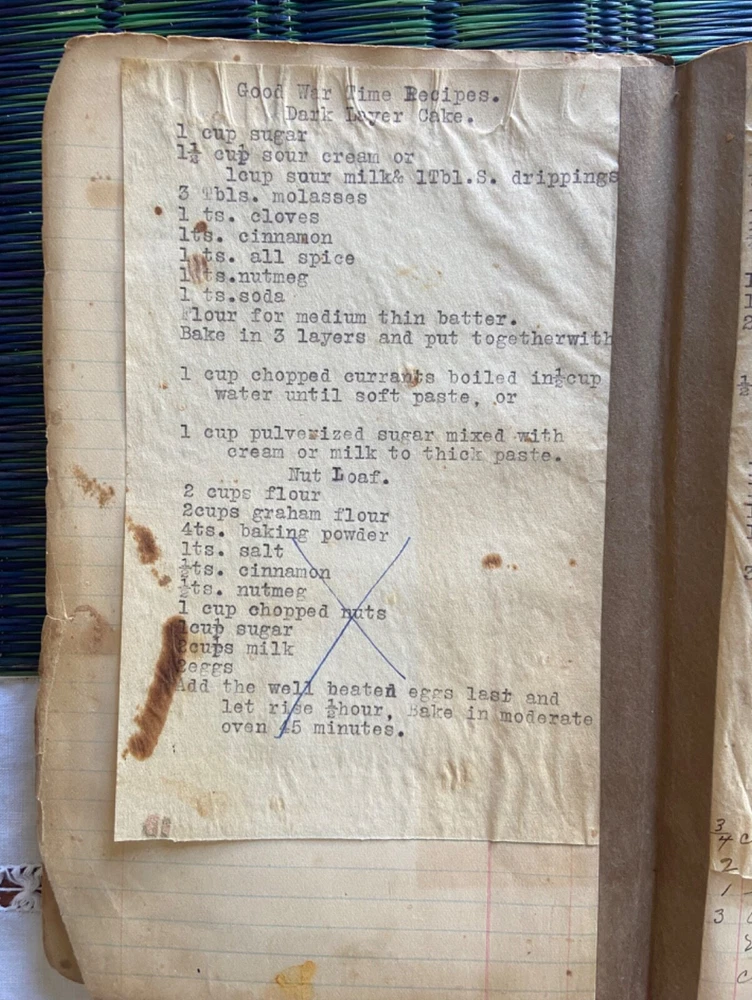 Good War Time Recipes.
Dark Layer Cake.
1 cup sugar
1¼ cup sour cream or
1cup sour milk& 1Tbl.S. drippings
3 Tbls. molasses
1 ts. cloves
1ts. cinnamon
1 ts. all spice
1 ts.nutmeg
1 ts.soda
Flour for medium thin batter.
Bake in 3 layers and put togetherwith
1 cup chopped currants boiled in½cup
water until soft paste, or
1 cup pulverized sugar mixed with
cream or milk to thick paste.
Nut Loaf.
2 cups flour
2cups graham flour
4ts. baking powder
1ts. salt
½ts. cinnamon
½ts. nutmeg
1 cup chopped nuts
1cup sugar
2cups milk
2eggs
Add the well beaten eggs last and
let rise ½hour, Bake in moderate
oven 45 minutes.
½
3/4 c
2
1
3